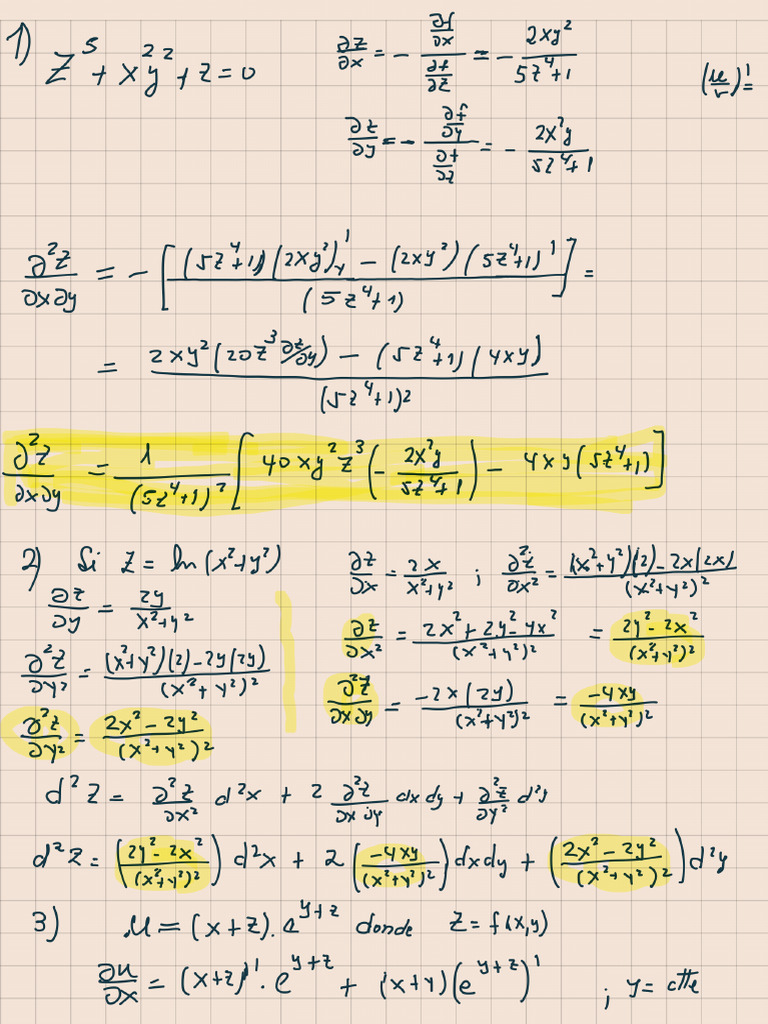 1) Z⁵ + x²y² + z = 0
∂z/∂x = - (∂f/∂x)/(∂f/∂z) = - 2xy²/(5z⁴+1)
(u/v)' =
∂z/∂y = - (∂f/∂y)/(∂f/∂z) = - 2x²y/(5z⁴+1)
∂²z/∂x∂y = - [((5z⁴+1)(2xy²)'_y - (2xy²)(5z⁴+1)')/(5z⁴+1)] =
= (2xy²(20z³ ∂z/∂y) - (5z⁴+1)(4xy))/(5z⁴+1)²
∂²z/∂x∂y = 1/(5z⁴+1)² [40xy²z³(- 2x²y/(5z⁴+1)) - 4xy(5z⁴+1)]
2) Si z = ln(x²+y²)
∂z/∂x = 2x/(x²+y²) ; ∂²z/∂x² = ((x²+y²)(2) - 2x(2x))/(x²+y²)²
∂z/∂y = 2y/(x²+y²)
∂z/∂x² = (2x²+2y²-4x²)/(x²+y²)² = (2y²-2x²)/(x²+y²)²
∂²z/∂y² = ((x²+y²)(2) - 2y(2y))/(x²+y²)²
∂²z/∂x∂y = -2x(2y)/(x²+y²)² = -4xy/(x²+y²)²
∂²z/∂y² = (2x²-2y²)/(x²+y²)²
d²z = ∂²z/∂x² d²x + 2 ∂²z/∂x∂y dxdy + ∂²z/∂y² d²y
d²z = ((2y²-2x²)/(x²+y²)²) d²x + 2(-4xy/(x²+y²)²) dxdy + ((2x²-2y²)/(x²+y²)²) d²y
3) u = (x+z).e^(y+z) donde z = f(x,y)
∂u/∂x = (x+z)'.e^(y+z) + (x+y)(e^(y+z))' ; y = ctte